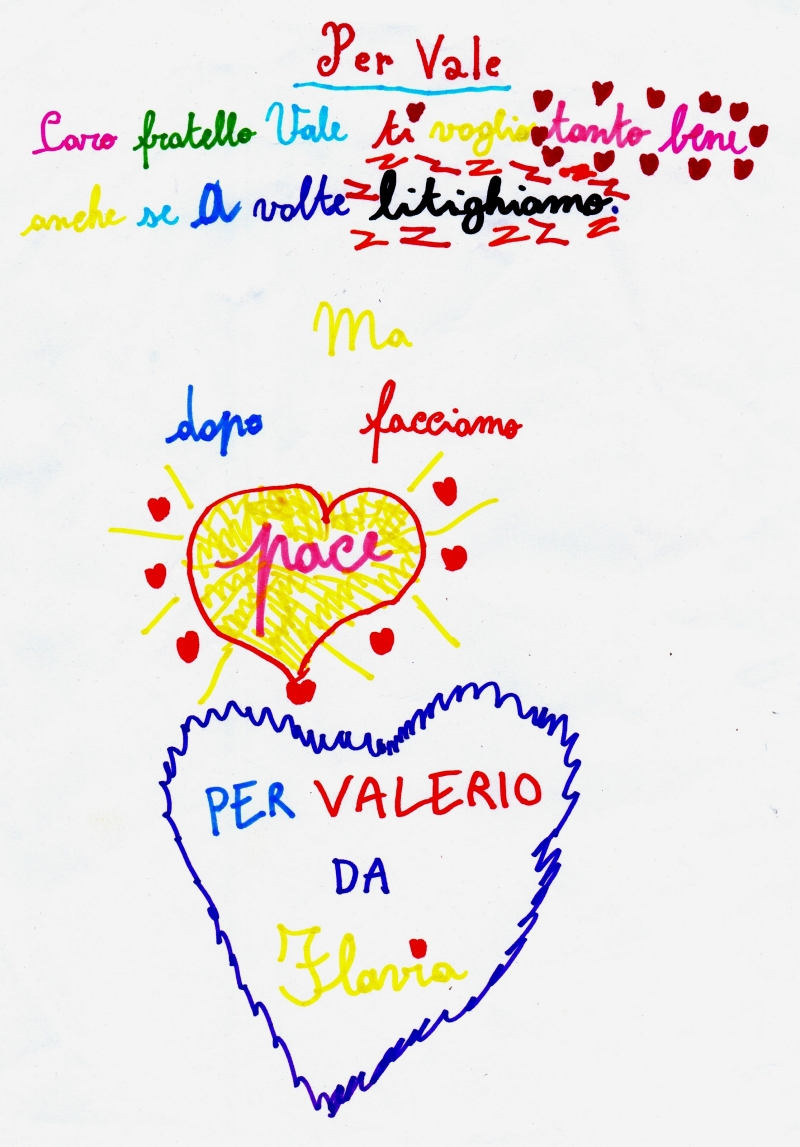 Per Vale
Caro fratello Vale ti voglio tanto bene
anche se A volte litighiamo.
Ma
dopo facciamo
pace
PER VALERIO
DA
Flavia